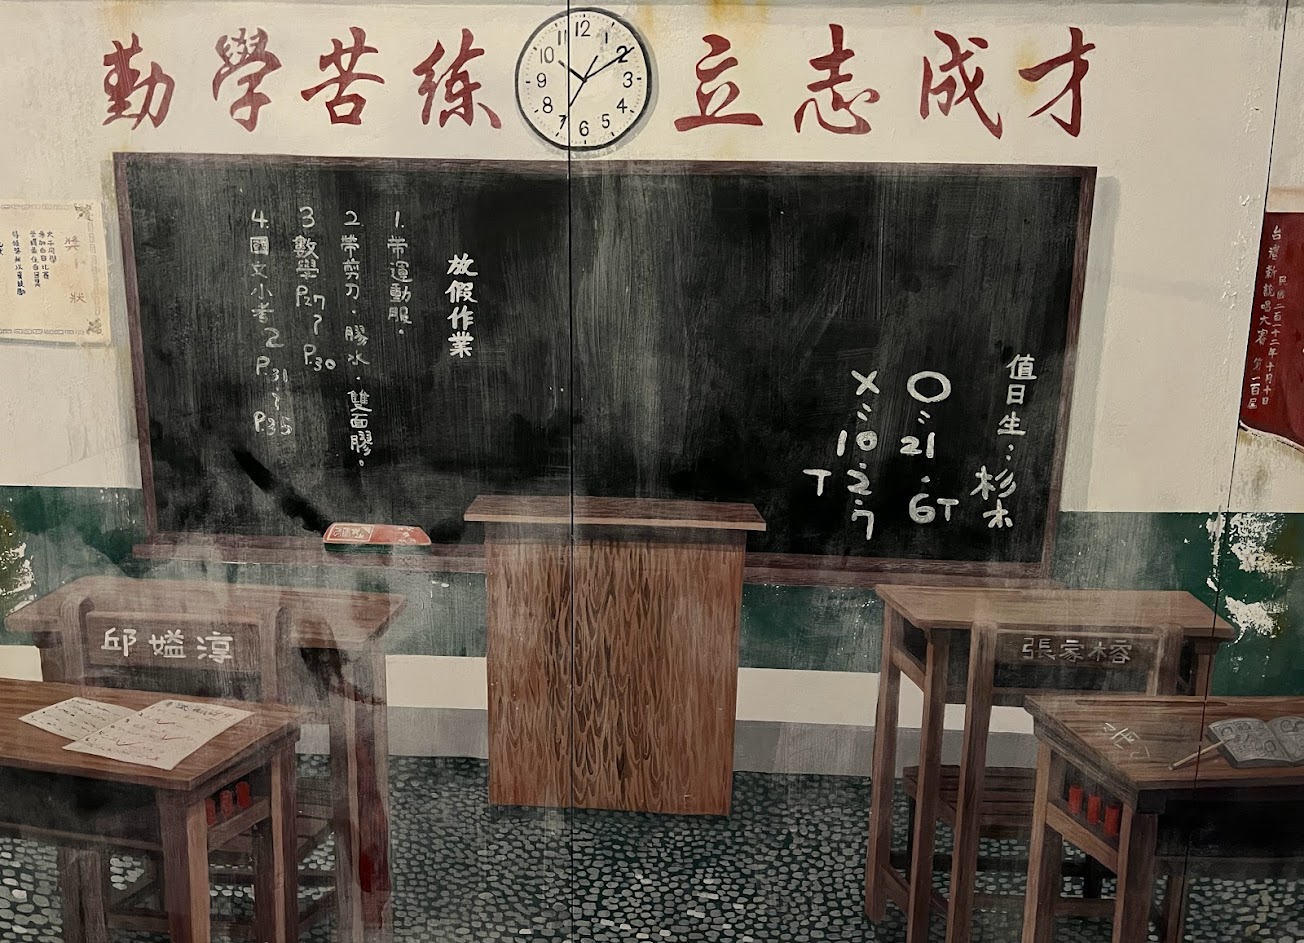 勤學苦练
立志成才
12
1
2
3
4
5
6
7
8
9
10
11
放假作業
1. 帶運動服.
2. 帶剪刀. 膠水. 雙面膠.
3 數學P27~P.30
4. 國文小考2 P.31~P.35
值日生: 杉木
O: 21. 6T
X: 10. 2. 7 T
獎狀
民國一百一十二年十月十日
台灣新說唱大賽 第一百屆
邱嬑淳
張家榕